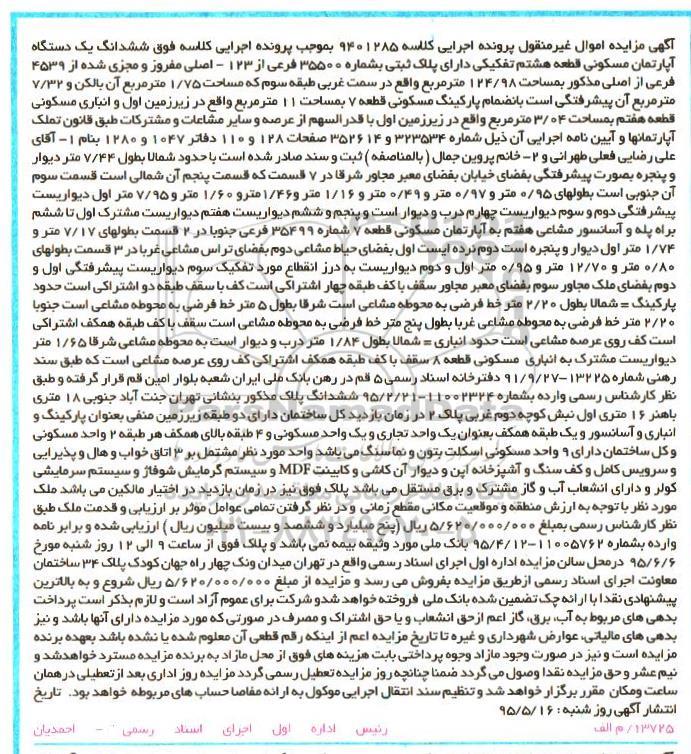 آگهی مزایده اموال غیرمنقول پرونده اجرایی کلاسه ۹۴۰۱۲۸۵ بموجب پرونده اجرایی کلاسه فوق ششدانگ یک دستگاه
آپارتمان مسکونی قطعه هشتم تفکیکی دارای پلاک ثبتی بشماره ۳۵۵۰۰ فرعی از ۱۲۳ - اصلی مفروز و مجزی شده از ۴۵۳۹
فرعی از اصلی مذکور بمساحت ۱۲۴/۹۸ مترمربع واقع در سمت غربی طبقه سوم که مساحت ۱/۷۵ مترمربع آن بالکن و ۷/۳۲
مترمربع آن پیشرفتگی است بانضمام پارکینگ مسکونی قطعه ۷ بمساحت ۱۱ مترمربع واقع در زیرزمین اول و انباری مسکونی
قطعه هفتم بمساحت ۳/۰۴ مترمربع واقع در زیرزمین اول با قدرالسهم از عرصه و سایر مشاعات و مشترکات طبق قانون تملک
آپارتمانها و آیین نامه اجرایی آن ذیل شماره ۳۲۳۵۳۴ و ۳۵۲۶۱۴ صفحات ۱۲۸ و ۱۱۰ دفاتر ۱۰۴۷ و ۱۲۸۰ بنام ۱- آقای
علی رضایی فعلی طهرانی و ۲- خانم پروین جمال ( بالمناصفه ) ثبت و سند صادر شده است با حدود شمالا بطول ۷/۴۴ متر دیوار
و پنجره بصورت پیشرفتگی بفضای خیابان بفضای معبر مجاور شرقا در ۷ قسمت که قسمت پنجم آن شمالی است قسمت سوم
آن جنوبی است بطولهای ۰/۹۵ متر و ۰/۹۷ متر و ۰/۴۹ متر و ۱/۱۶ متر و ۱/۴۶مترو ۱/۶۰ متر و ۷/۹۵ متر اول دیواریست
پیشرفتگی دوم و سوم دیواریست چهارم درب و دیوار است و پنجم و ششم دیواریست هفتم دیواریست مشترک اول تا ششم
براه پله و آسانسور مشاعی هفتم به آپارتمان مسکونی قطعه ۷ شماره ۳۵۴۹۹ فرعی جنوبا در ۲ قسمت بطولهای ۷/۱۷ متر و
۱/۷۴ متر اول دیوار و پنجره است دوم نرده ایست اول بفضای حیاط مشاعی دوم بفضای تراس مشاعی غربا در ۳ قسمت بطولهای
۰/۸۰ متر و ۱۲/۷۰ متر و ۰/۹۵ متر اول و دوم دیواریست به درز انقطاع مورد تفکیک سوم دیواریست پیشرفتگی اول و
دوم بفضای ملک مجاور سوم بفضای معبر مجاور سقف با کف طبقه چهار اشتراکی است کف با سقف طبقه دو اشتراکی است حدود
پارکینگ = شمالا بطول ۲/۲۰ متر خط فرضی به محوطه مشاعی است شرقا بطول ۵ متر خط فرضی به محوطه مشاعی است جنوبا
۲/۲۰ متر خط فرضی به محوطه مشاعی غربا بطول پنج متر خط فرضی به محوطه مشاعی است سقف با کف طبقه همکف اشتراکی
است کف روی عرصه مشاعی است حدود انباری = شمالا بطول ۱/۸۴ متر درب و دیوار است به محوطه مشاعی شرقا ۱/۶۵ متر
دیواریست مشترک به انباری مسکونی قطعه ۸ سقف با کف طبقه همکف اشتراکی کف روی عرصه مشاعی است که طبق سند
رهنی شماره ۱۳۲۲۵-۹۱/۹/۲۷ دفترخانه اسناد رسمی ۵ قم در رهن بانک ملی ایران شعبه بلوار امین قم قرار گرفته و طبق
نظر کارشناس رسمی وارده بشماره ۱۱۰۰۲۳۲۴-۹۵/۲/۲۱ ششدانگ پلاک مذکور بنشانی تهران جنت آباد جنوبی ۱۸ متری
باهنر ۱۶ متری اول نبش کوچه دوم غربی پلاک ۲ در زمان بازدید کل ساختمان دارای دو طبقه زیرزمین منفی بعنوان پارکینگ و
انباری و آسانسور و یک طبقه همکف بعنوان یک واحد تجاری و یک واحد مسکونی و ۴ طبقه بالای همکف هر طبقه ۲ واحد مسکونی
و کل ساختمان دارای ۹ واحد مسکونی اسکلت بتون و نما سنگ می باشد واحد مورد نظر مشتمل بر ۳ اتاق خواب و هال و پذیرایی
و سرویس کامل و کف سنگ و آشپزخانه اپن و دیوار آن کاشی و کابینت MDF و سیستم گرمایش شوفاژ و سیستم سرمایشی
کولر و دارای انشعاب آب و گاز مشترک و برق مستقل می باشد پلاک فوق نیز در زمان بازدید در اختیار مالکین می باشد ملک
مورد نظر با توجه به ارزش منطقه و موقعیت مکانی مقطع زمانی و در نظر گرفتن تمامی عوامل موثر بر ارزیابی و قدمت ملک طبق
نظر کارشناس رسمی بمبلغ ۵/۶۲۰/۰۰۰/۰۰۰ ریال (پنج میلیارد و ششصد و بیست میلیون ریال ) ارزیابی شده و برابر نامه
وارده بشماره ۱۱۰۰۵۷۶۲-۹۵/۴/۱۲ بانک ملی مورد وثیقه بیمه نمی باشد و پلاک فوق از ساعت ۹ الی ۱۲ روز شنبه مورخ
۹۵/۶/۶ درمحل سالن مزایده اداره اول اجرای اسناد رسمی واقع در تهران میدان ونک چهار راه جهان کودک پلاک ۳۴ ساختمان
معاونت اجرای اسناد رسمی ازطریق مزایده بفروش می رسد و مزایده از مبلغ ۵/۶۲۰/۰۰۰/۰۰۰ ریال شروع و به بالاترین
پیشنهادی نقدا با ارائه چک تضمین شده بانک ملی فروخته خواهد شدو شرکت برای عموم آزاد است و لازم بذکر است پرداخت
بدهی های مربوط به آب، برق، گاز اعم ازحق انشعاب و یا حق اشتراک و مصرف در صورتی که مورد مزایده دارای آنها باشد و نیز
بدهی های مالیاتی، عوارض شهرداری و غیره تا تاریخ مزایده اعم از اینکه رقم قطعی آن معلوم شده یا نشده باشد بعهده برنده
مزایده است و نیز در صورت وجود مازاد وجوه پرداختی بابت هزینه های فوق از محل مازاد به برنده مزایده مسترد خواهدشد و
نیم عشر و حق مزایده نقدا وصول می گردد ضمنا چنانچه روز مزایده تعطیل رسمی گردد مزایده روز اداری بعد ازتعطیلی درهمان
ساعت ومکان مقرر برگزار خواهد شد و تنظیم سند انتقال اجرایی موکول به ارائه مفاصا حساب های مربوطه خواهد بود. تاریخ
انتشار آگهی روز شنبه : ۹۵/۵/۱۶
۱۳۷۲۵/ م الف رئیس اداره اول اجرای اسناد رسمی - احمدیان